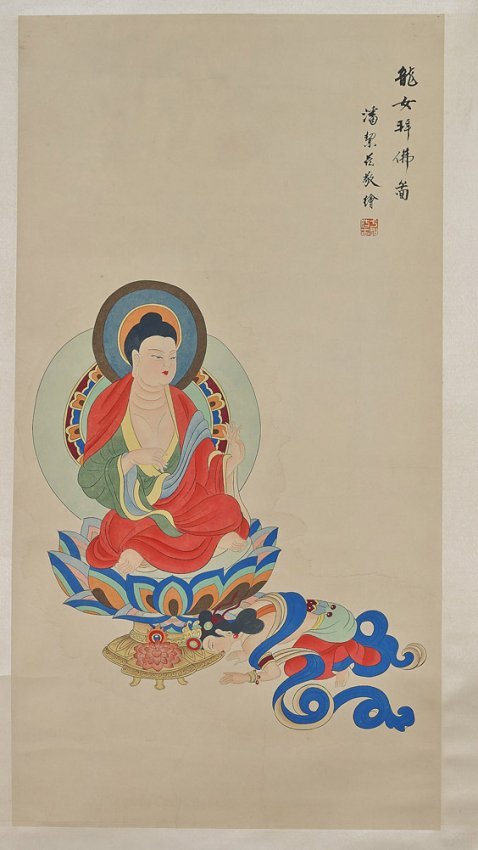 龍女拜佛圖
潘絜茲敬繪